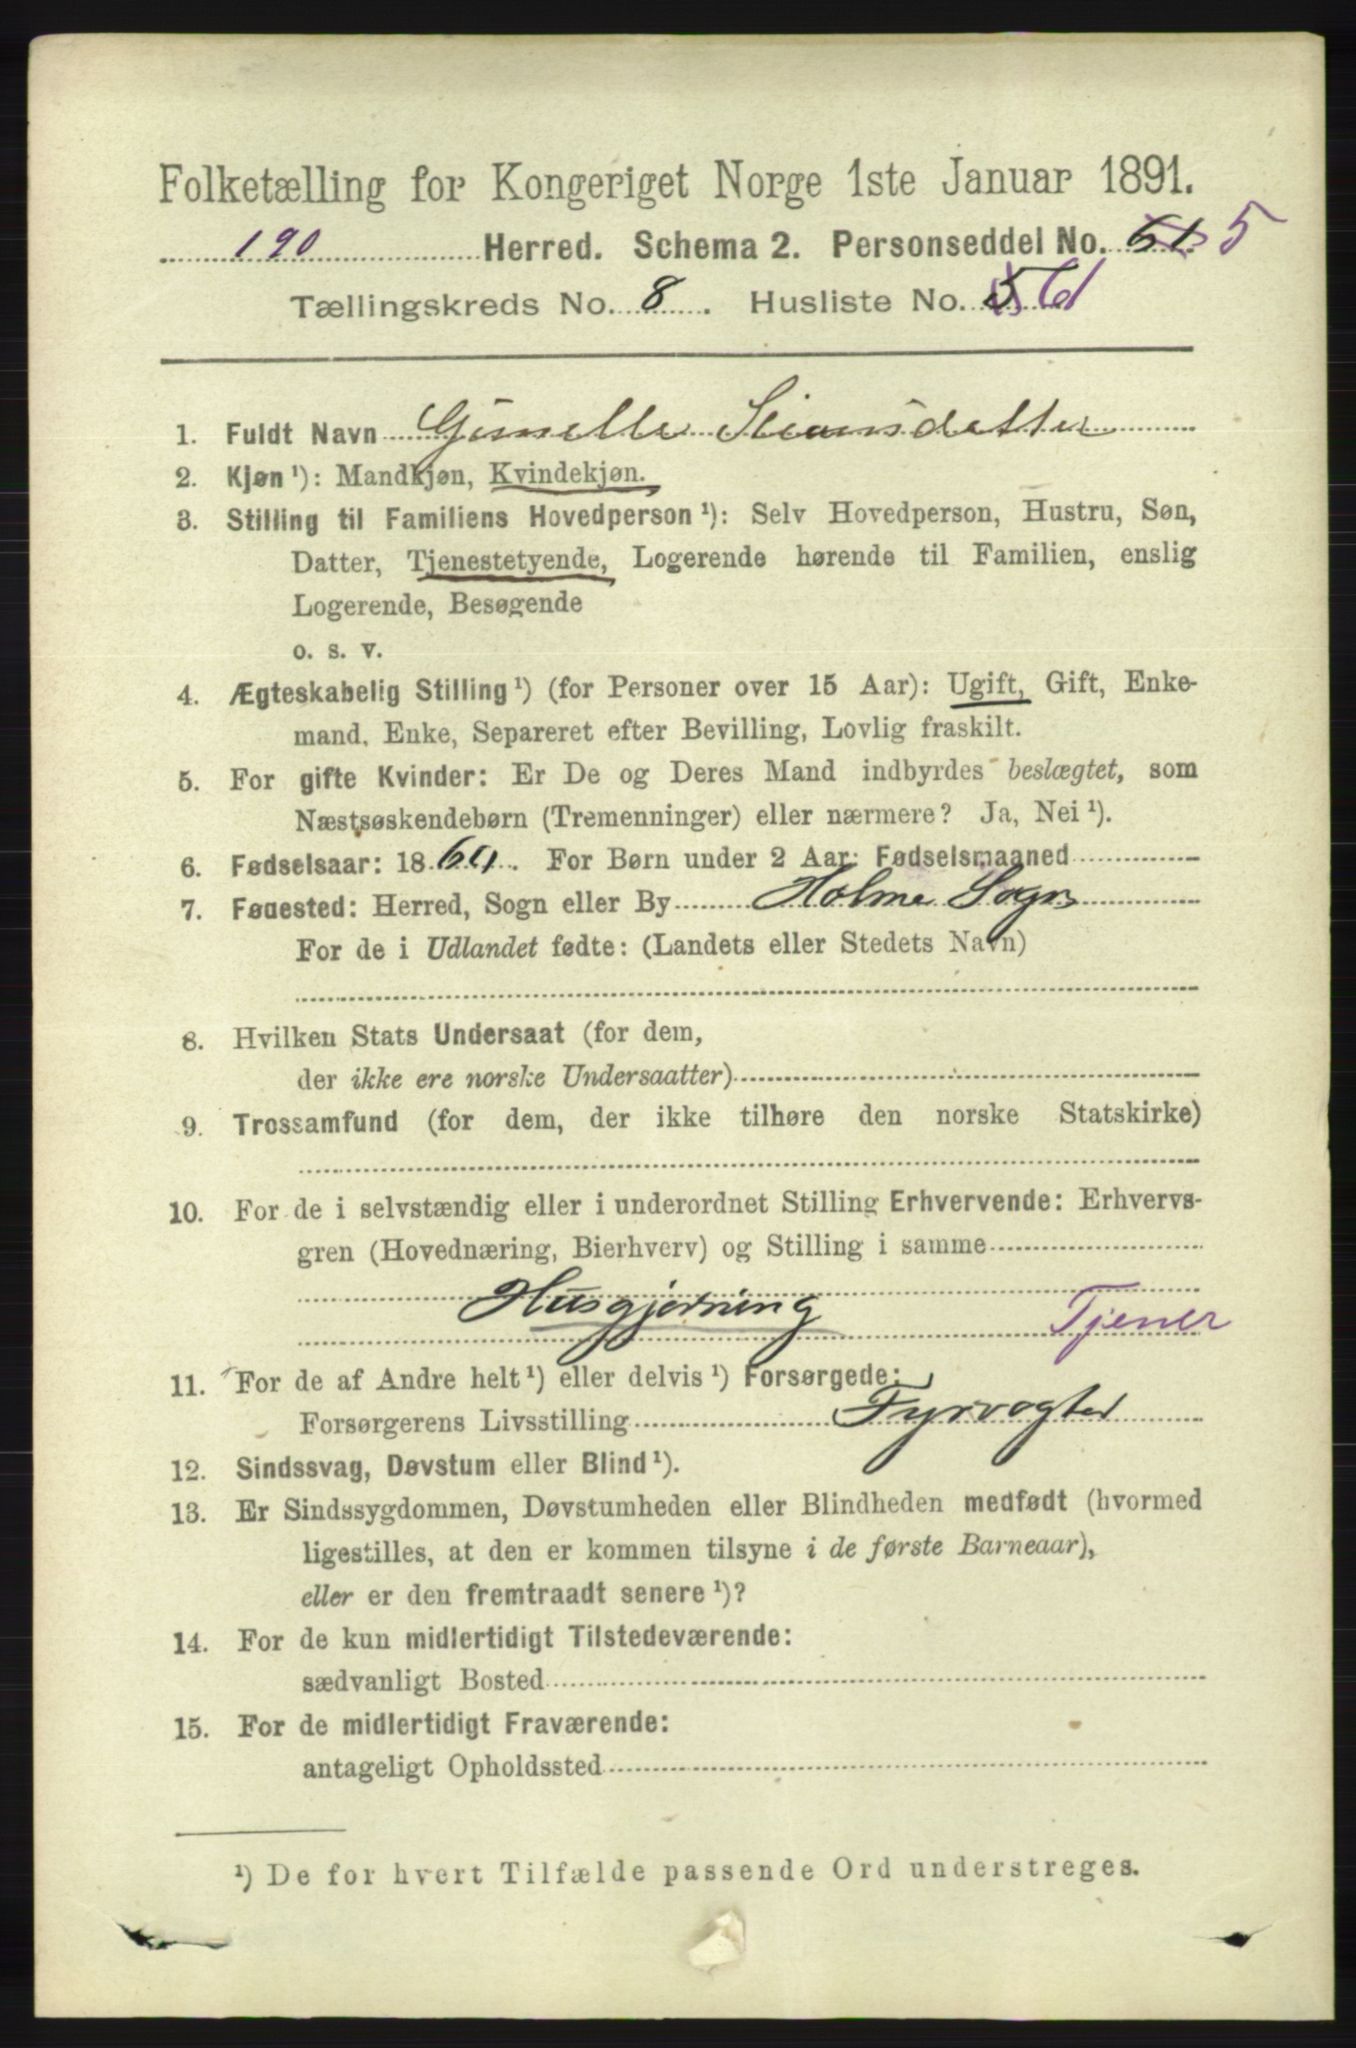 Folketælling for Kongeriget Norge 1ste Januar 1891.
190 Herred. Schema 2. Personseddel No. 61 5
Tællingskreds No. 8. Husliste No. 5
1. Fuldt Navn
2. Kjøn ¹): Mandkjøn, Kvindekjøn.
3. Stilling til Familiens Hovedperson ¹): Selv Hovedperson, Hustru, Søn,
Datter, Tjenestetyende, Logerende hørende til Familien, enslig
Logerende, Besøgende
o. s. v.
4. Ægteskabelig Stilling ¹) (for Personer over 15 Aar): Ugift, Gift, Enke-
mand, Enke, Separeret efter Bevilling, Lovlig fraskilt.
5. For gifte Kvinder: Er De og Deres Mand indbyrdes beslægtet, som
Næstsøskendebørn (Tremenninger) eller nærmere? Ja, Nei ¹).
6. Fødselsaar: 18 . For Børn under 2 Aar: Fødselsmaaned
7. Fødested: Herred, Sogn eller By Holme Sogn
For de i Udlandet fødte: (Landets eller Stedets Navn)
8. Hvilken Stats Undersaat (for dem,
der ikke ere norske Undersaatter)
9. Trossamfund (for dem, der ikke tilhøre den norske Statskirke)
10. For de i selvstændig eller i underordnet Stilling Erhvervende: Erhvervs-
gren (Hovednæring, Bierhverv) og Stilling i samme
Husgjerning Tjener
11. For de af Andre helt ¹) eller delvis ¹) Forsørgede:
Forsørgerens Livsstilling Fyrvogter
12. Sindssvag, Døvstum eller Blind ¹).
13. Er Sindssygdommen, Døvstumheden eller Blindheden medfødt (hvormed
ligestilles, at den er kommen tilsyne i de første Barneaar),
eller er den fremtraadt senere ¹)?
14. For de kun midlertidigt Tilstedeværende:
sædvanligt Bosted
15. For de midlertidigt Fraværende:
antageligt Opholdssted
¹) De for hvert Tilfælde passende Ord understreges.